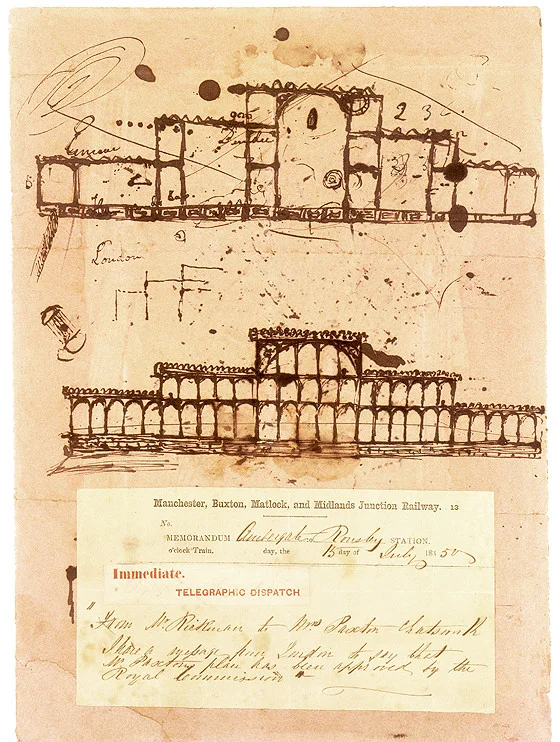 2 3
London
Manchester, Buxton, Matlock, and Midlands Junction Railway. 13
No.
MEMORANDUM Ambergate Rowsley STATION.
o'clock Train. day, the 15 day of July 1850
Immediate.
TELEGRAPHIC DISPATCH
"From Mr Rickman to Mrs Paxton Chatsworth
I have a message from London to say that
Mr Paxtons plan has been approved by the
Royal Commission"